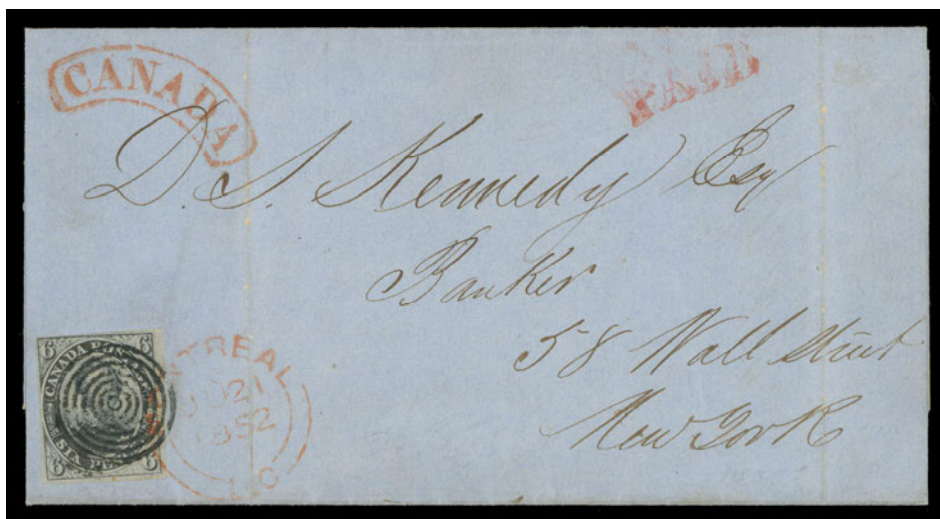 CANADA
PAID
D. S. Kennedy Esq
Banker
58 Wall Street
New York
6 6
CANADA POS
SIX PEN
6 6
TREAL
21
1852
L.C